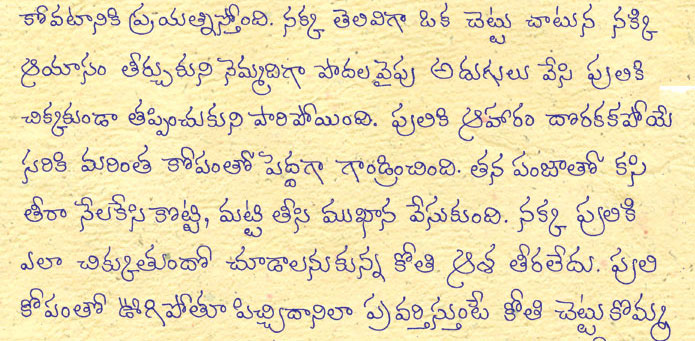 కోవటానికి ప్రయత్నిస్తోంది. నక్క తెలివిగా ఒక చెట్టు చాటున నక్కి
ఆయాసం తీర్చుకుని నెమ్మదిగా పొదలవైపు అడుగులు వేసి పులికి
చిక్కకుండా తప్పించుకుని పారిపోయింది. పులికి ఆహారం దొరకకపోయే
సరికి మరింత కోపంతో పెద్దగా గాండ్రించింది. తన పంజాతో కసి
తీరా నేలకేసి కొట్టి, మట్టి తీసి ముఖాన వేసుకుంది. నక్క పులికి
ఎలా చిక్కుతుందో చూడాలనుకున్న కోతి ఆశ తీరలేదు. పులి
కోపంతో ఊగిపోతూ పిచ్చిదానిలా ప్రవర్తిస్తుంటే కోతి చెట్టుకొమ్మ